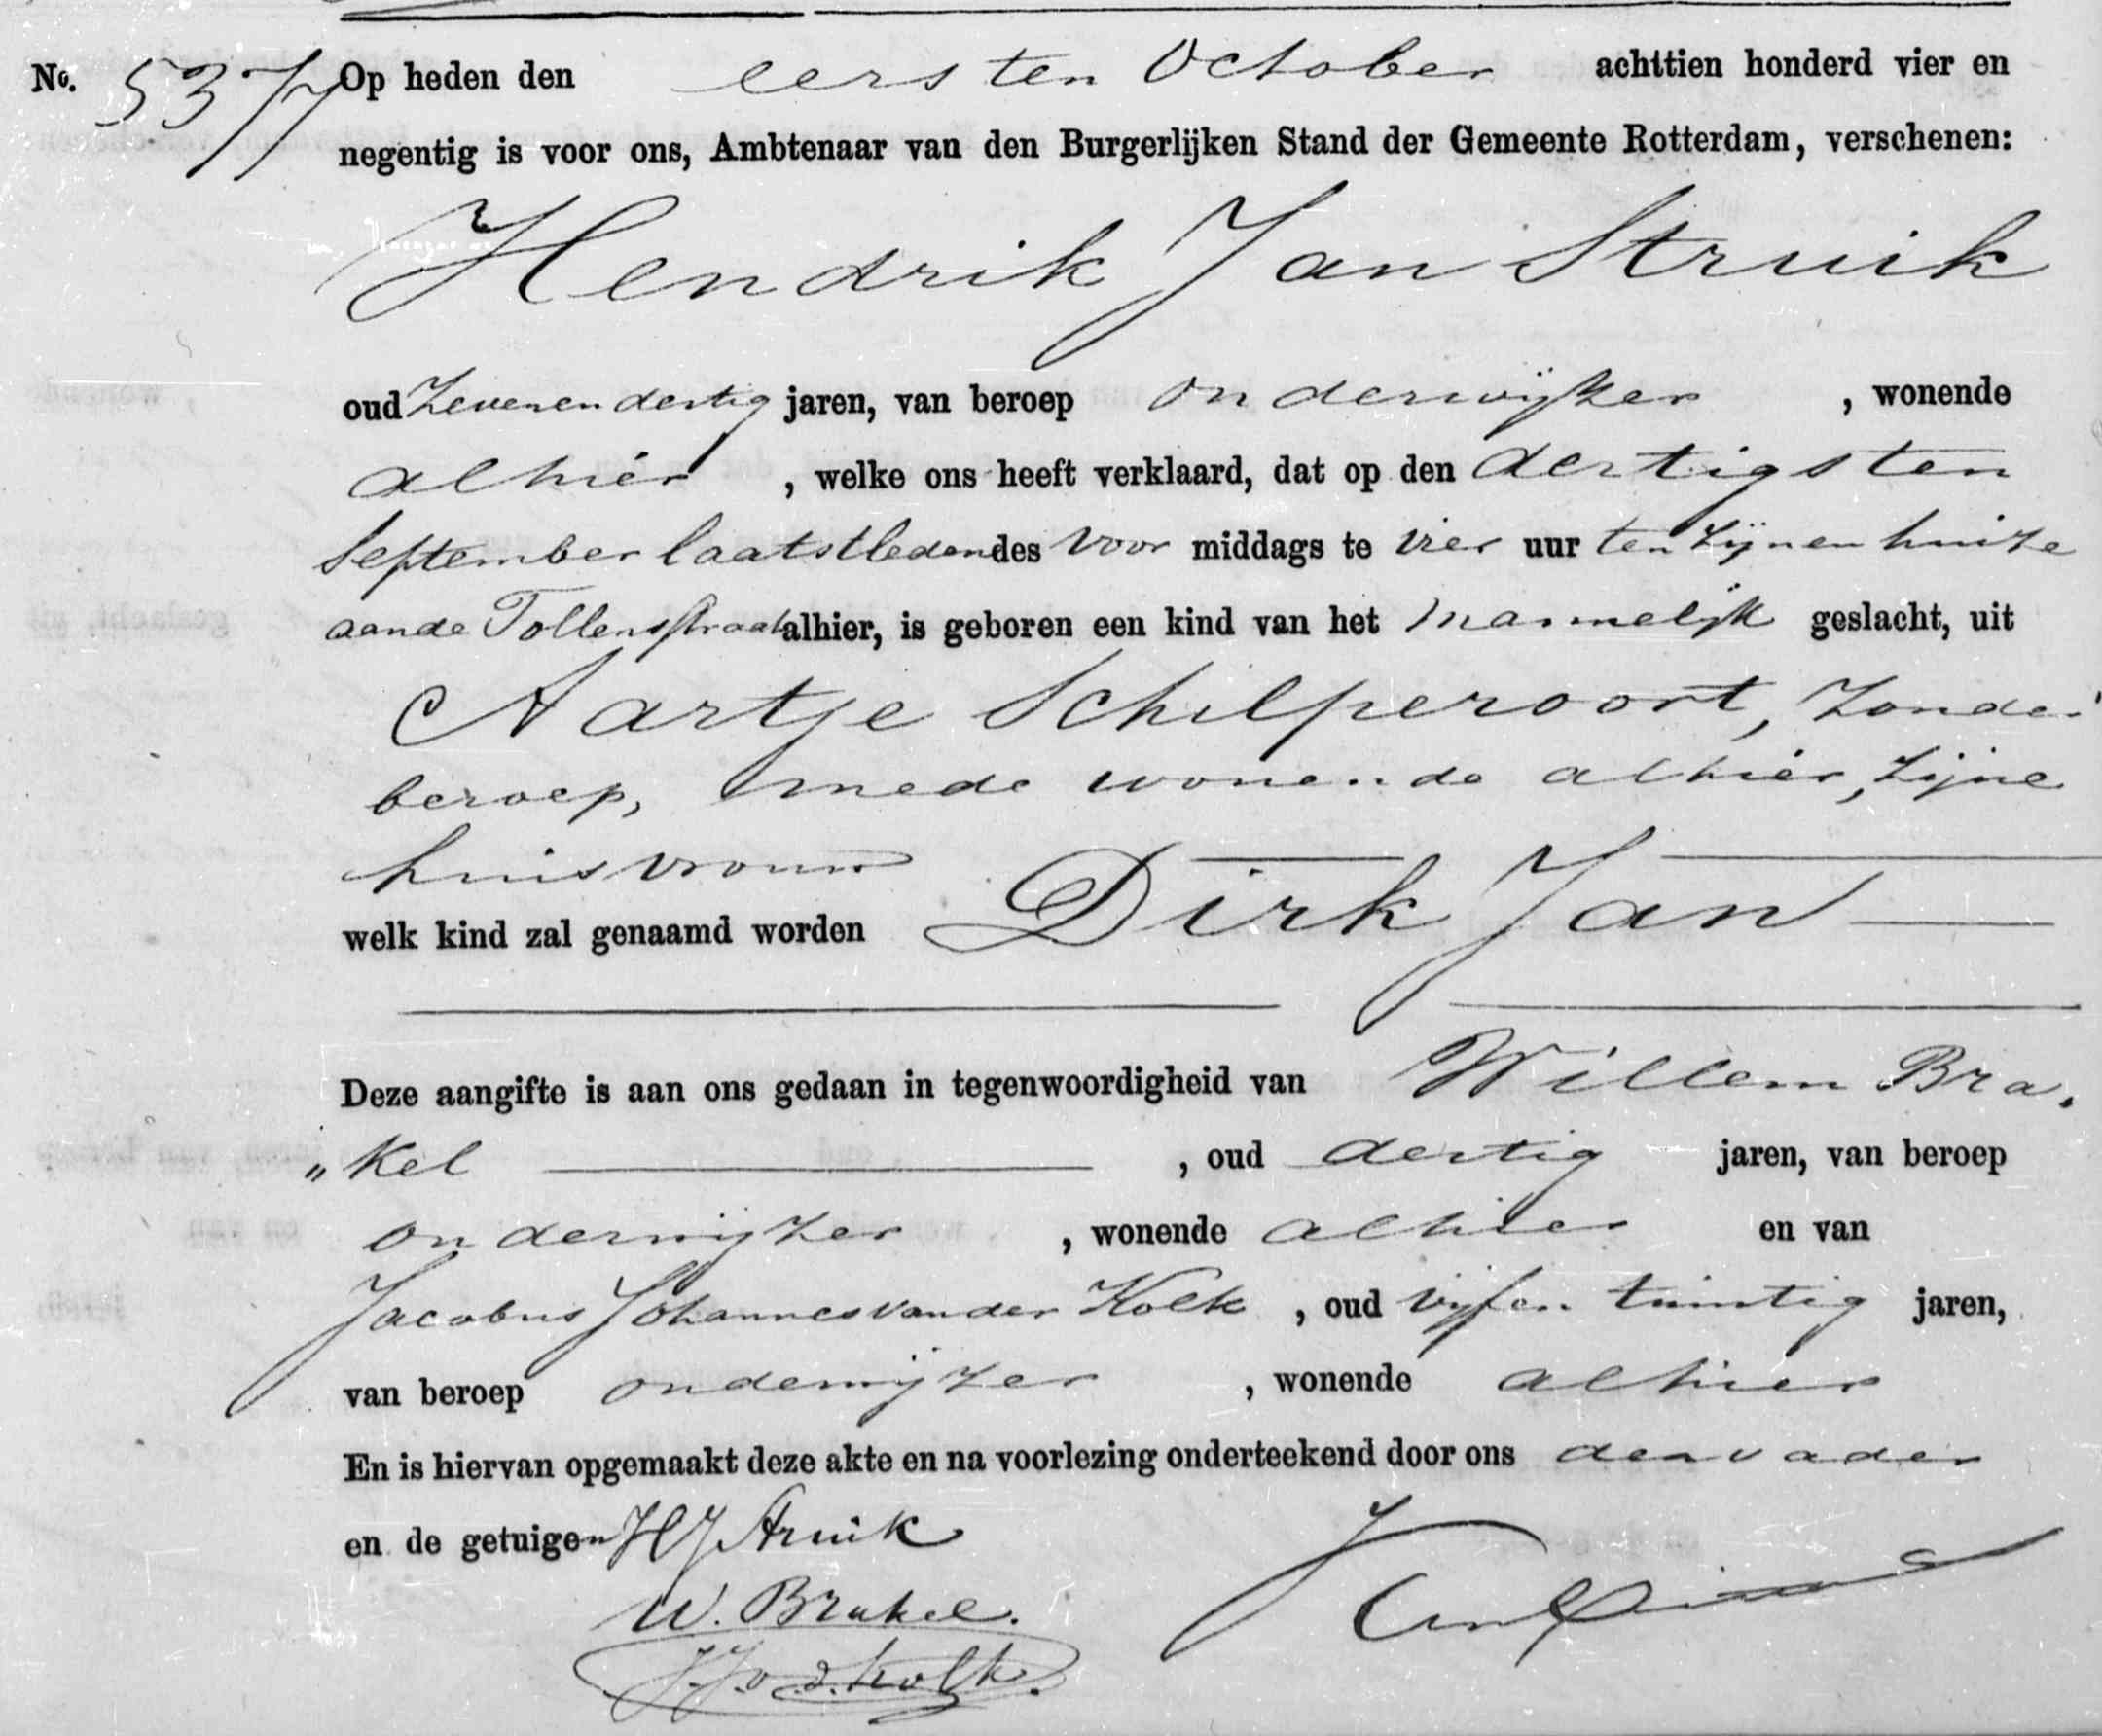 No. 5377 Op heden den eersten October achttien honderd vier en
negentig is voor ons, Ambtenaar van den Burgerlijken Stand der Gemeente Rotterdam, verschenen:
Hendrik Jan Struik
oud Zevenendertig jaren, van beroep onderwijzer, wonende
alhier, welke ons heeft verklaard, dat op den dertigsten
September laatstleden des voor middags te vier uur ten zijnen huize
aan de Tollensstraat alhier, is geboren een kind van het mannelijk geslacht, uit
Aartje Schilperoort, zonder
beroep, mede wonende alhier, zijne
huisvrouw
welk kind zal genaamd worden Dirk Jan
Deze aangifte is aan ons gedaan in tegenwoordigheid van Willem Bra„
„kel, oud dertig jaren, van beroep
onderwijzer, wonende alhier en van
Jacobus Johannes van der Kolk, oud vijf en twintig jaren,
van beroep onderwijzer, wonende alhier
En is hiervan opgemaakt deze akte en na voorlezing onderteekend door ons den vader
en de getuigen HJ Struik
W. Brakel.
JJ v. d. Kolk.